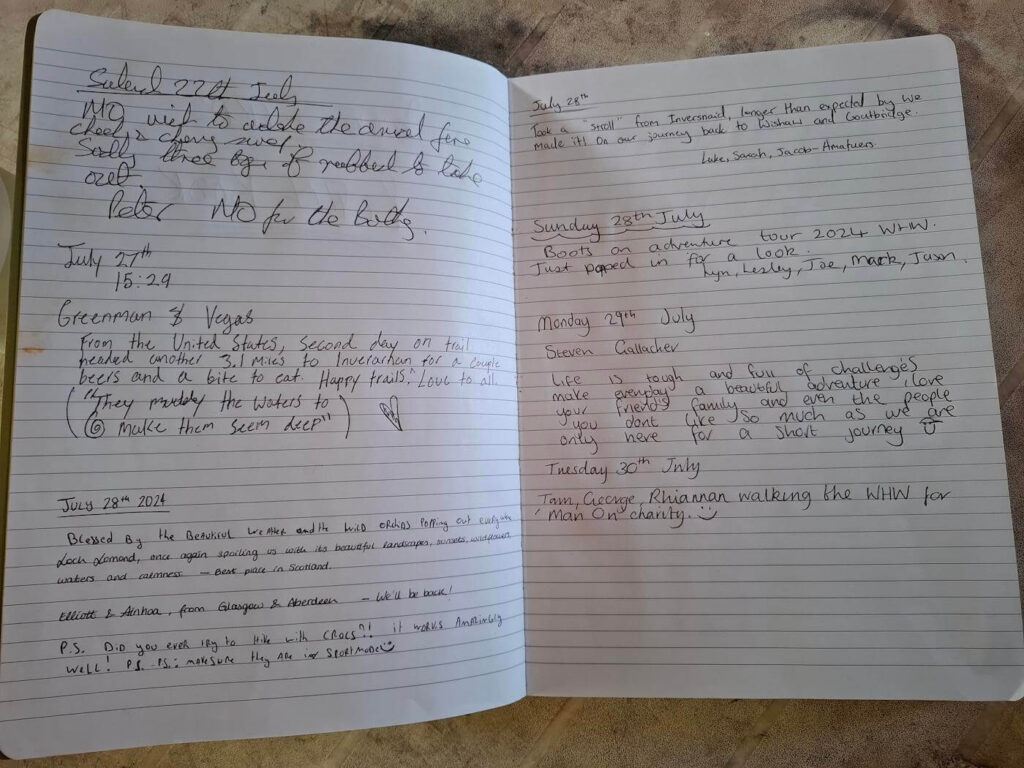 27th July
MO visit to
three bags of rubbish to take
out.
Peter MO for the Bothy.
July 27th
15:29
Greenman & Vegas
From the United States, second day on trail
headed another 3.1 miles to Inverarnan for a couple
beers and a bite to eat. Happy trails, Love to all.
("They muddy the waters to
make them seem deep")
July 28th 2024
Blessed By the Beautiful weather and the wild orchids popping out everywhere
Loch Lomond, once again spoiling us with its beautiful landscapes, sunsets, wildflowers,
waters and calmness - Best place in Scotland.
Elliott & Ainhoa, from Glasgow & Aberdeen - We'll be back!
P.S. Did you ever try to Hike with CROCS?! it works Amazingly
well! P.S. P.S.: make sure they are in sport mode
July 28th
Took a "stroll" from Inversnaid, longer than expected by we
made it! On our journey back to Wishaw and Coatbridge.
Luke, Sarah, Jacob-Amatuers
Sunday 28th July
Boots on adventure tour 2024 WHW.
Just popped in for a look.
Lyn, Lesley, Joe, Mark, Juan.
Monday 29th July
Steven Gallacher
Life is tough and full of challenges
make everyday a beautiful adventure love
your friends family and even the people
you dont like so much as we are
only here for a short journey
Tuesday 30th July
Tam, George, Rhiannan walking the WHW for
"Man On" charity.